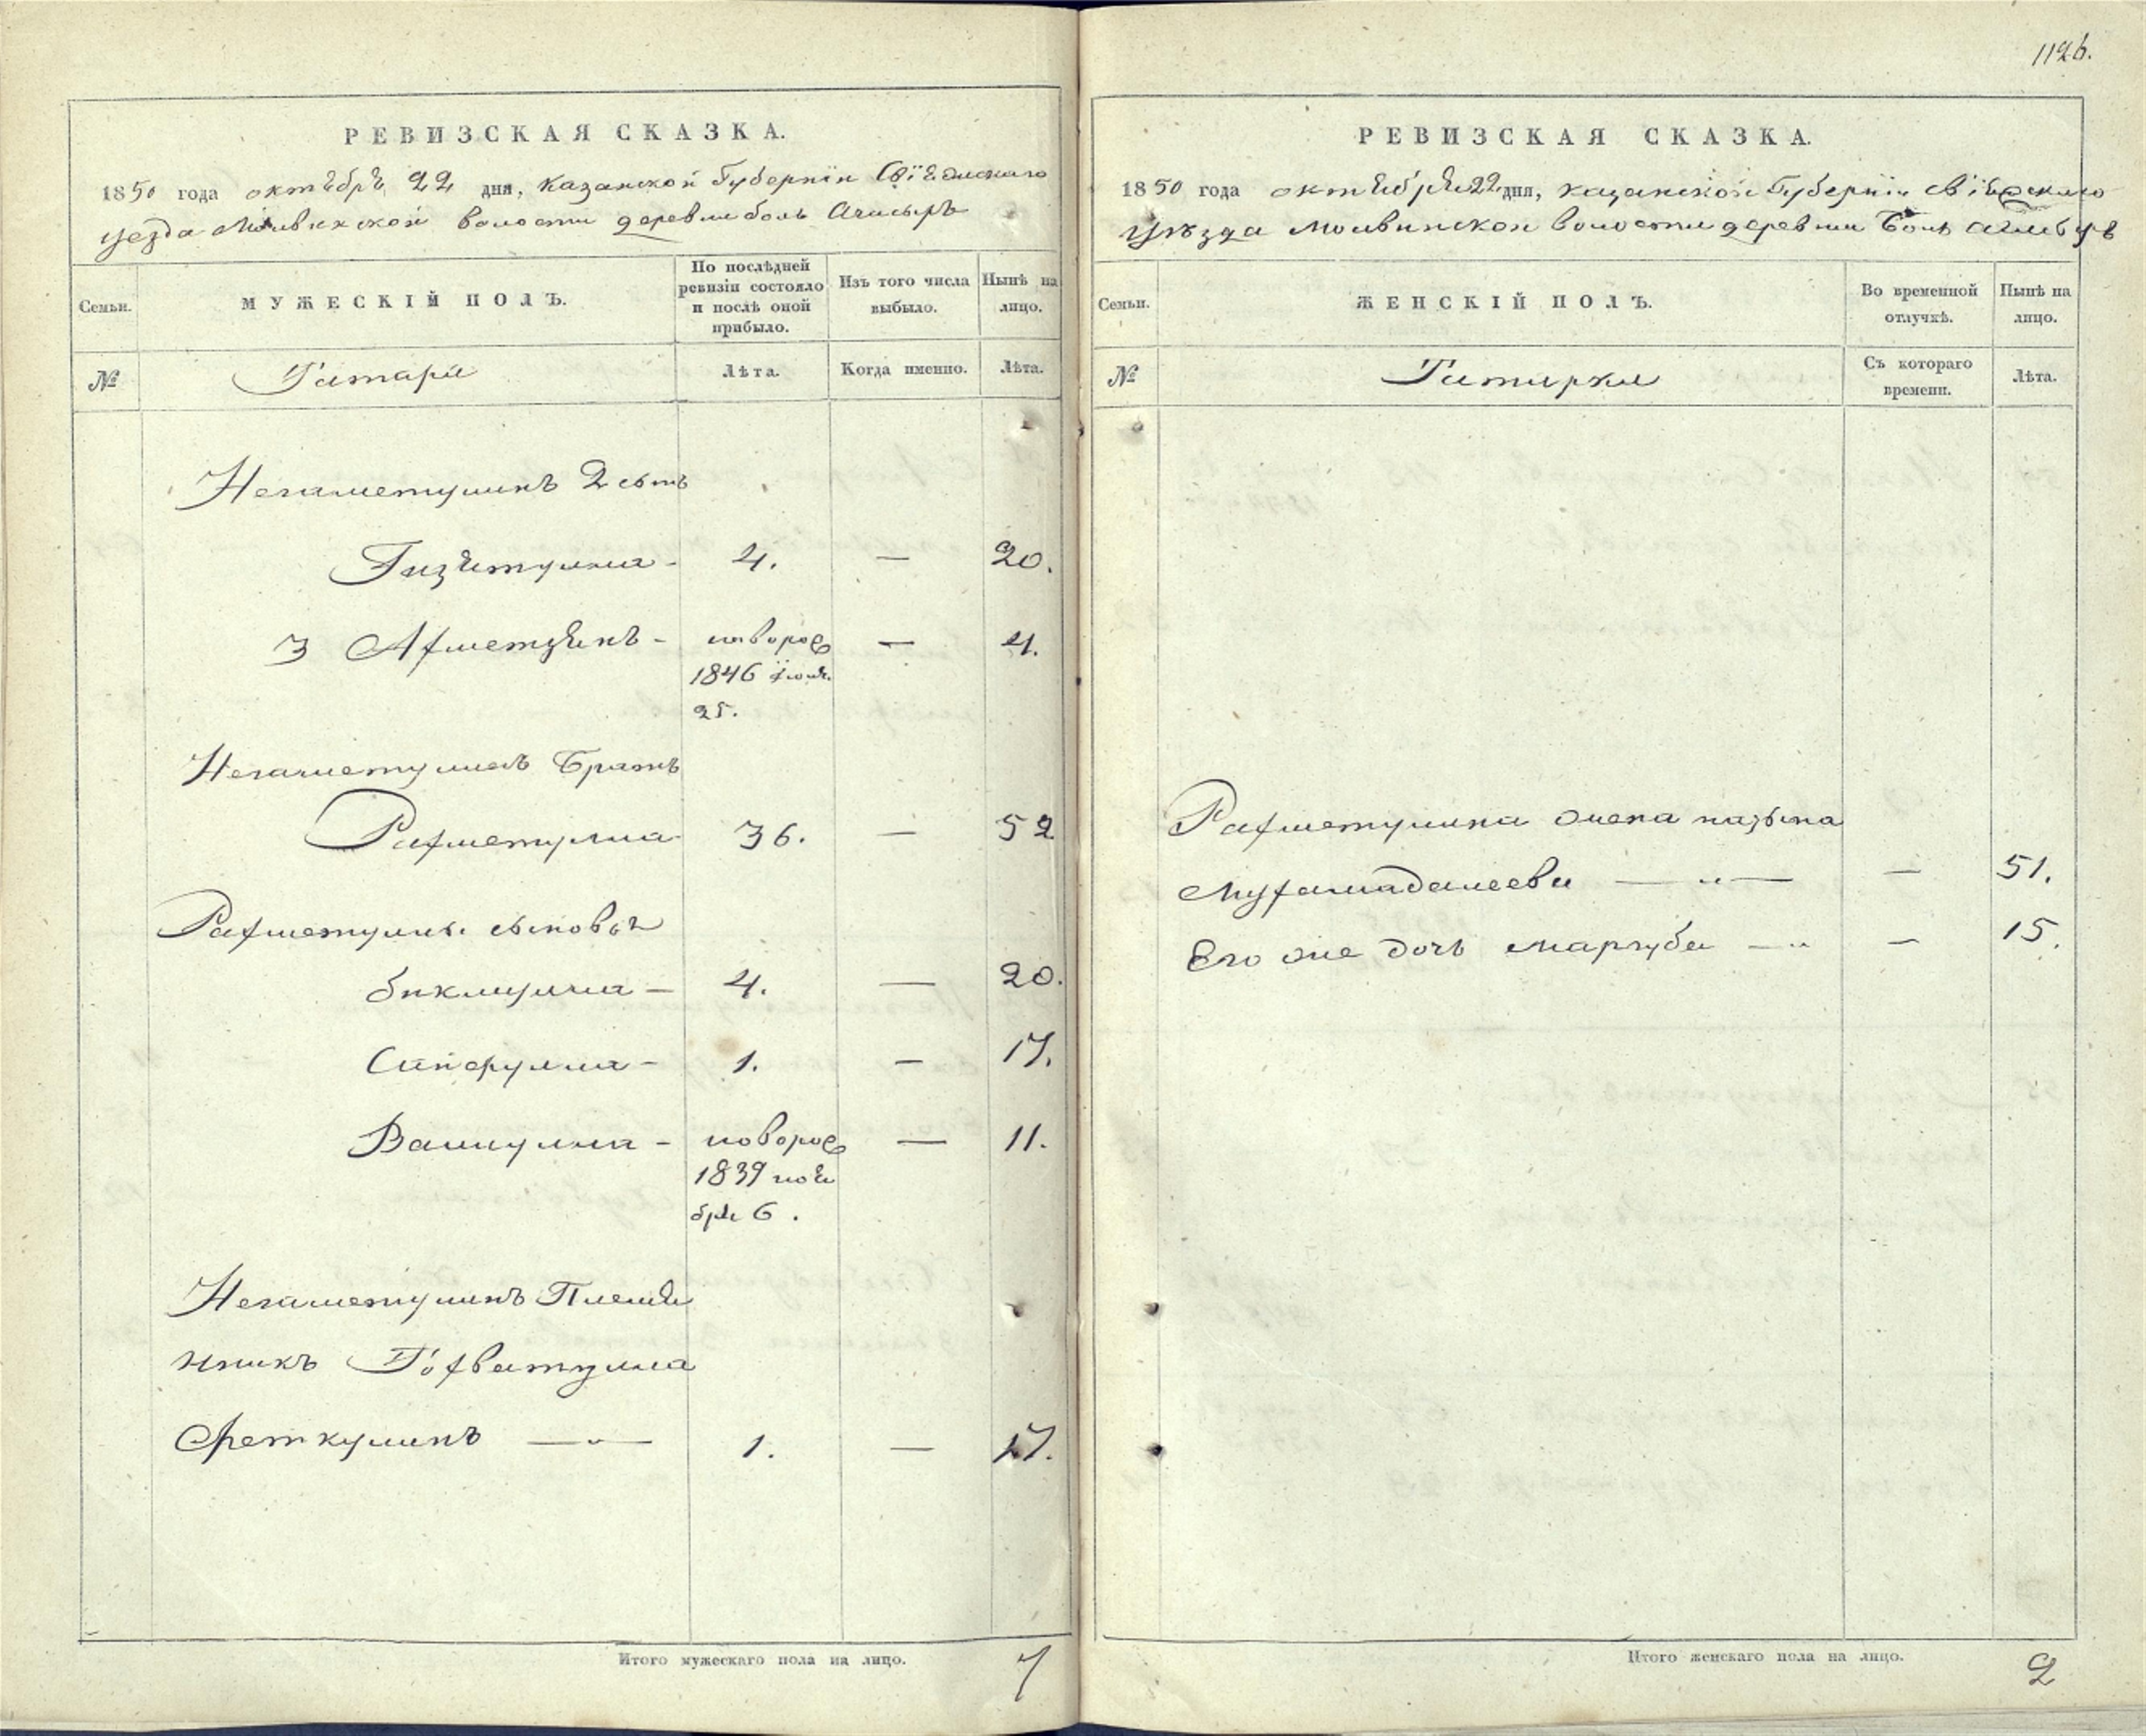 1126.
РЕВИЗСКАЯ СКАЗКА.
1850 года октебре 22 дня, Казанской Губернiи Свiежскаго
уезда Молвинской волости деревни боль Ачасыръ
Семьи. МУЖЕСКІЙ ПОЛЪ. По послѣдней ревизіи состояло и послѣ оной прибыло. Изъ того числа выбыло. Нынѣ на лицо.
№ Татара Лѣта. Когда именно. Лѣта.
Негаметулинъ 2 сынъ
Гизетулла - 4. — 20.
3 Ахметзянъ - новорож — 4.
1846 iюля
25.
Негаметулинъ братъ
Рахметулла 36. — 52
Рахметуллы сыновья
Бикмулла — 4. — 20.
Сайфулла - 1. — 17.
Валиулла - новорож — 11.
1839 ноя
бря 6.
Негаметулинъ Племя
нникъ
Феткулинъ — 1. — 17.
Итого мужескаго пола на лицо. 7
РЕВИЗСКАЯ СКАЗКА.
1850 года октября 22 дня, казанской Губернiи свiяжскаго
Уѣзда Молвинской волости деревни Боль
Семьи. ЖЕНСКІЙ ПОЛЪ. Во временной отлучкѣ. Нынѣ на лицо.
№ Татарки Съ котораго времени. Лѣта.
Рахметуллина жена
Мухамадалеева — „ — — 51.
Его же дочь Маргуба — „ – 15.
Итого женскаго пола на лицо. 2